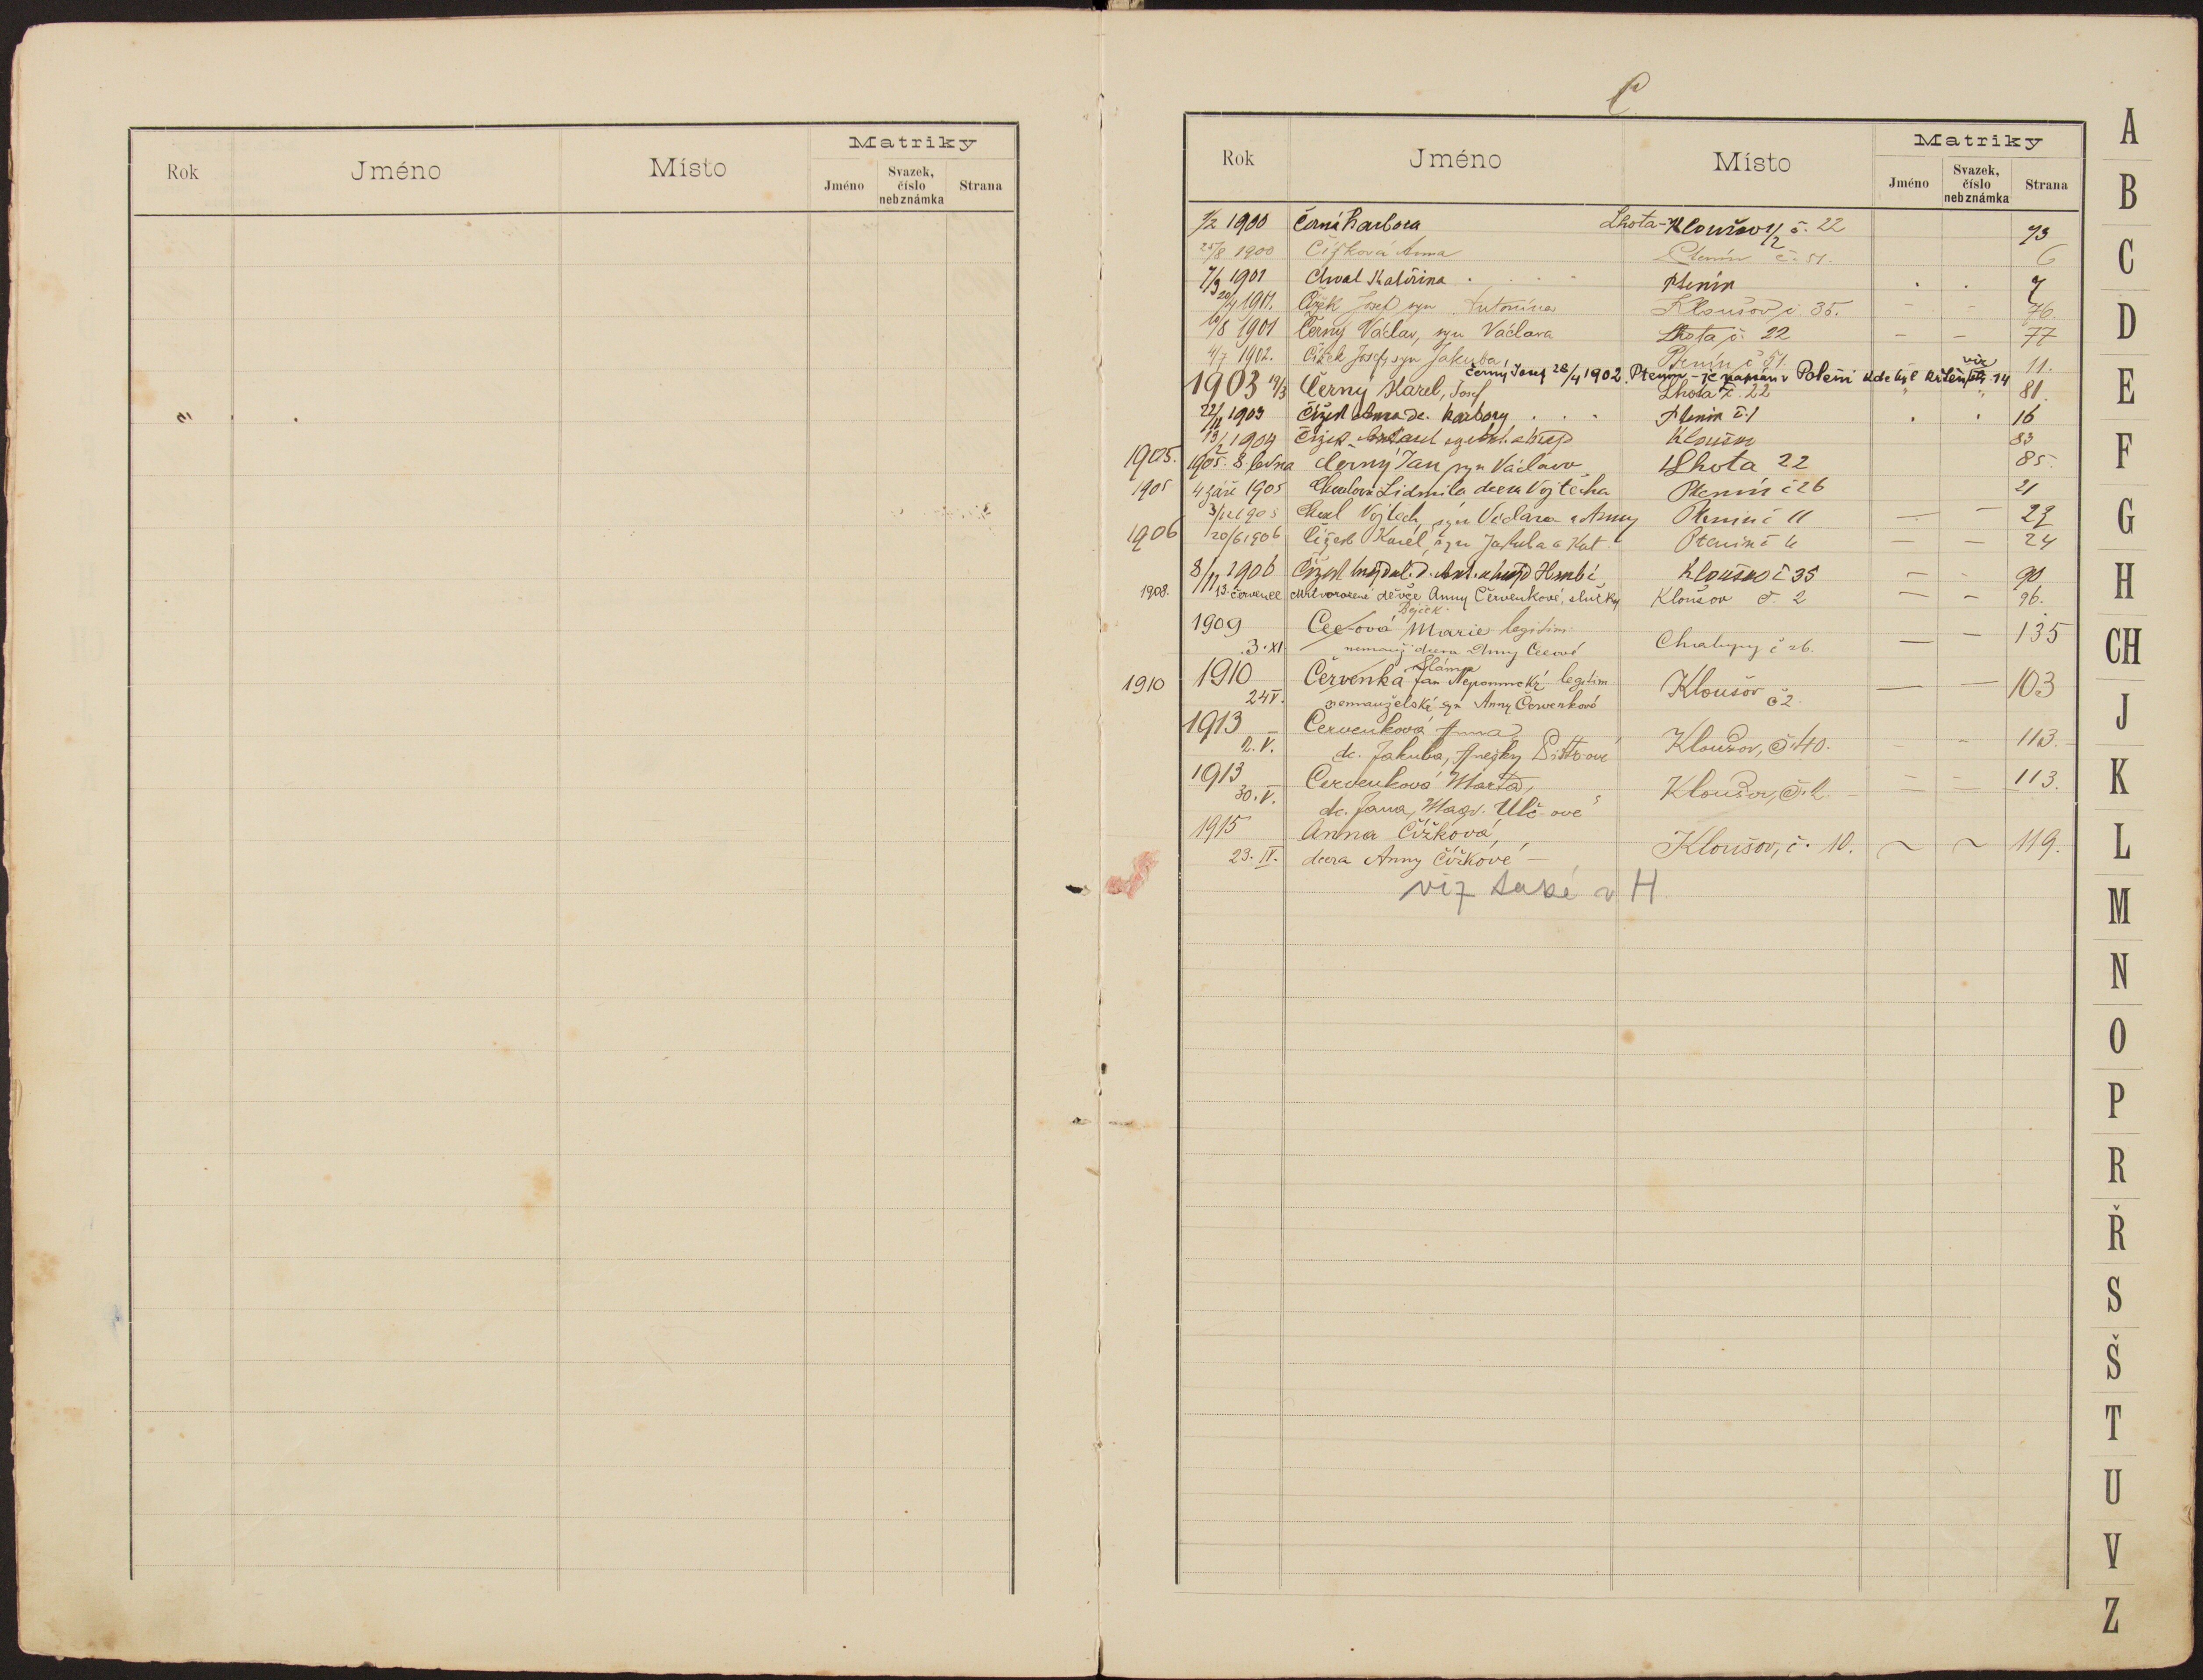 Rok Jméno Místo Matriky
Jméno Svazek, číslo neb známka Strana
C
Rok Jméno Místo Matriky
Jméno Svazek, číslo neb známka Strana
1/2 1900 Černá Barbora Lhota - Kloušov č. 22 73
25/8 1900 Čížková Anna Ptenín č. 51. 6
7/3 1901 Chval Kateřina Ptenín 7
20/4 1901. Čížek Josef syn Antonína Kloušov č. 35. - - 76.
10/8 1901 Černý Václav, syn Václava Lhota č. 22 - - 77
4/7 1902. Čížek Josef, syn Jakuba Ptenín č 51. 11.
Černý Josef 28/4 1902. Ptenín - je zapsán v Poleni kde byl křtěn viz str. 14
1903 19/3 Černý Karel, Josef Lhota č. 22 " " 81.
22/11 1903 Čížek Anna dc. Barbory Ptenín č. 1 16
13/2 1904 Čížek Kloušov 83
1905. 1905. 8. ledna Černý Jan, syn Václava Lhota 22 85.
1905 4 září 1905 Chvalová Lidmila dcera Vojtěcha Ptenín č 26 21
3/12 1905 Chval Vojtěch, syn Václava a Anny Ptenín č 11 — —
1906 20/6 1906 Čížek Karel, syn Jakuba a Kat. Ptenín č — — 24
8/11 1906 Čížek Kloušov č 35 - - 90
1908. 13. červenec Mrtvorozené děvče Anny Červenkové, služky Kloušov č. 2 — — 96.
Boječk.
1909 Cec-ová Marie legitim.
3. XI nemanž. dcera Anny Cecové Chalupy č 26. — — 135
Sláma
1910 1910 Červenka Jan Nepomucký legitim.
24 V. nemanželský syn Anny Červenkové Kloušov č 2. — — 103
1913 Červenková Anna,
2. V. dc. Jakuba, Anežky Kloušov, č. 40. - - 113.
1913 Červenková Marta,
30. V. dc. Jana, Magd. Ulč-ové Kloušov, č. 2. - - 113.
1915 Anna Čížková,
23. IV. dcera Anny Čížkové — Kloušov, č. 10. ~ ~ 119.
viz také v H
A
B
C
D
E
F
G
H
CH
J
K
L
M
N
O
P
R
Ř
S
Š
T
U
V
Z